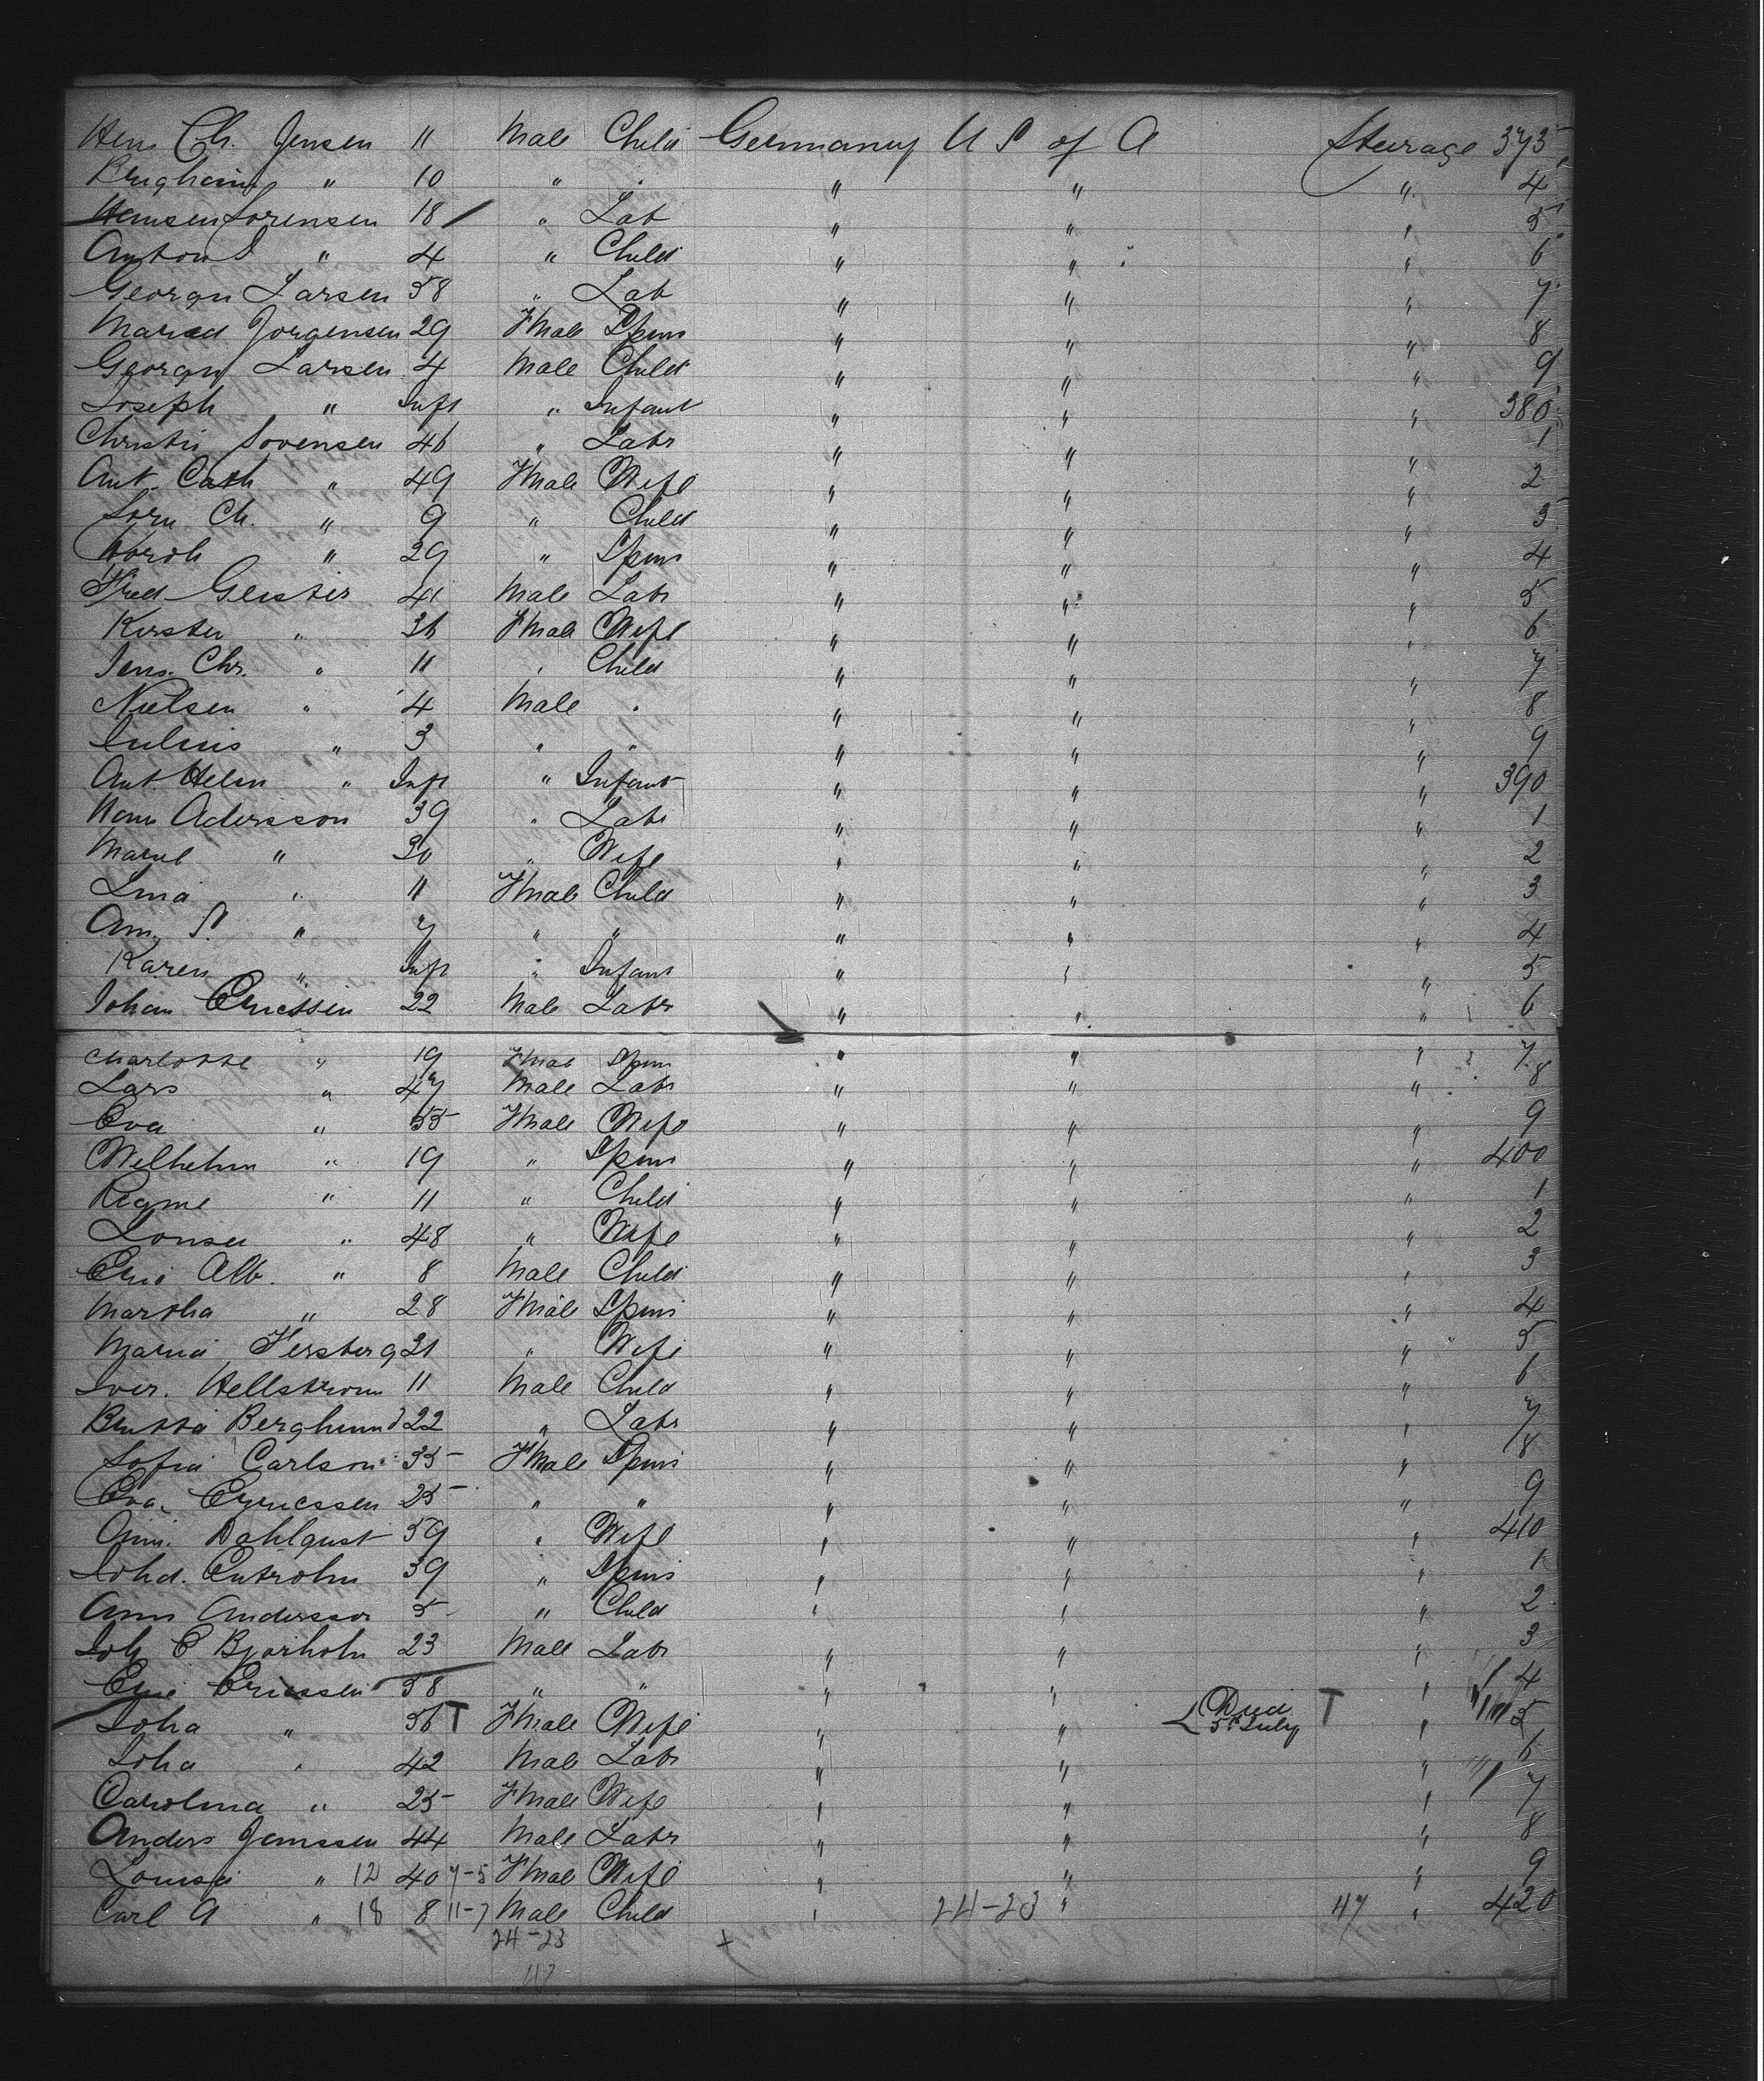 Hem Ch. Jensen 11 Male Child Germany U S of A Steerage 373
Brugham " 10 " " " " " 4
Hansen Sorensen 18 / " Lab " " " 5
Anton S " 4 " Child " " " 6
Georgn Larsen 58 " Lab " " " 7
Maried Jorgensen 29 Fmale Spins " " " 8
Georgn Larsen 4 Male Child " " " 9
Joseph " Inft " Infant " " " 380
Christin Sorensen 46 " Labr " " " 1
Ant. Cath " 49 Fmale Wife " " " 2
Sorn Ch. " 9 " Child " " " 3
" 29 " Spins " " " 4
Fred Gleister 41 Male Labr " " " 5
Kirsten " 36 Fmale Wife " " " 6
Jens. Chr. " 11 " Child " " " 7
Nielsen " 4 Male " " " " 8
Julius " 3 " " " " " 9
Ant. Helen " Inft " Infant " " " 390
Hans Adersson 39 " Labr " " " 1
" 30 " Wife " " " 2
Lina " 11 Fmale Child " " " 3
Am. S. " 7 " " " " " 4
Karen " Inft " Infant " " " 5
Johan Ericssen 22 Male Labr " " " 6
Charlotte " 19 Fmale Spins " " " 7
Lars " 47 Male Labr " " " 8
Eva " 55 Fmale Wife " " " 9
Wilhelm " 19 " Spins " " " 400
Regine " 11 " Child " " " 1
Lousa " 48 " Wife " " " 2
Eric Alb. " 8 Male Child " " " 3
Martha " 28 Fmale Spins " " " 4
Maria Fersberg 21 " Wife " " " 5
Iver. Hellstrom 11 Male Child " " " 6
Britta Berghund 22 " Labr " " " 7
Sofia Carlson 35 Fmale Spins " " " 8
Eva Eyricssen 25 " " " " " 9
Ann. Dahlqust 59 " Wife " " " 410
Johd. Entrohm 39 " Spins " " " 1
Ann Andersson 5 " Child " " " 2
Joh C Bjorholm 23 Male Labr " " " 3
Eric Ericssen 58 " " " " " 4
Joha " 56 T Fmale Wife " " Died 5th July T " 5
Joha " 42 Male Labr " " " 6
Carolina " 25 Fmale Wife " " " 7
Anders Janssen 44 Male Labr " " " 8
Lousa " 12 40 7-5 Fmale Wife " " " 9
Carl A " 18 8 11-7 Male Child " 24-23 " 47 " 420
24-23
47